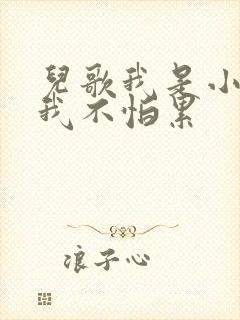 兒歌我是小
我不怕累
浪子心